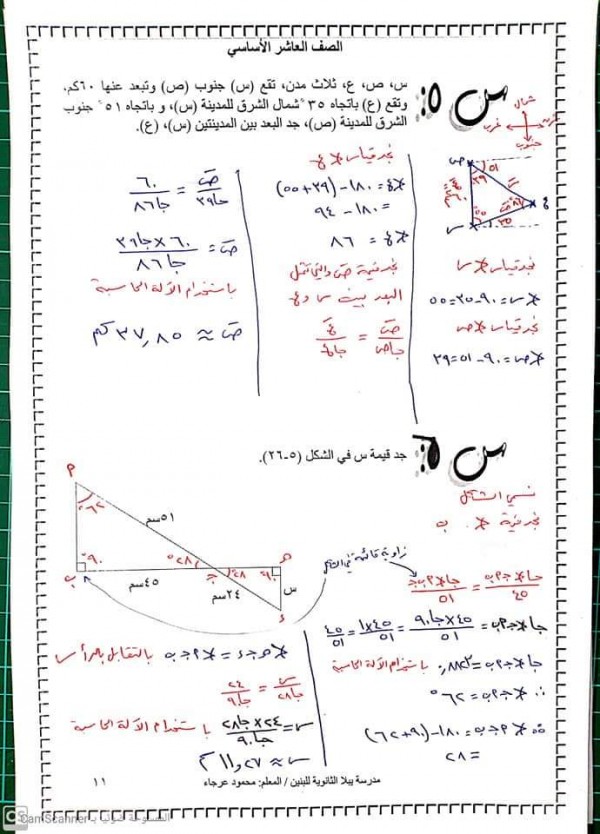 الصف العاشر الأساسي
س٥:
س، ص، ع، ثلاث مدن، تقع (س) جنوب (ص) وتبعد عنها ٦٠كم،
وتقع (ع) باتجاه ٣٥° شمال الشرق للمدينة (س)، و باتجاه ٥١° جنوب
الشرق للمدينة (ص)، جد البعد بين المدينتين (س)، (ع).
شمال
شرق
غرب
جنوب
ص
٥١
٣٩
٦٠كم
ع
٨٦
٥٥
٣٥
س
نجد قياس ∢ س
∢س = ٩٠ - ٣٥ = ٥٥
نجد قياس ∢ص
∢ص = ٩٠ - ٥١ = ٣٩
نجد قياس ∢ع
∢ع = ١٨٠ - (٣٩ + ٥٥)
= ١٨٠ - ٩٤
∢ع = ٨٦
نجد قيمة صَ والتي تمثل
البعد بين س و ع
صَ / جاص = عَ / جاع
صَ / جا٣٩ = ٦٠ / جا٨٦
صَ = ٦٠ × جا٣٩ / جا٨٦
باستخدام الآلة الحاسبة
صَ ≈ ٣٧,٨٥ كم
س٦:
جد قيمة س في الشكل (٥-٢٦).
م
٦٢°
٥١سم
٩٠°
ب
٤٥سم
٢٨°
جـ
٢٨
هـ
٩٠
س
٢٤سم
د
زاوية قائمة في الشكل
نسمي الشكل
نجد قيمة ∢ ب
جا∢مجب / ٤٥ = جا∢مبج / ٥١
جا∢جمب = ٤٥ × جا٩٠ / ٥١ = ٤٥ × ١ / ٥١ = ٤٥ / ٥١
جا∢جمب = ٠,٨٨٢ باستخدام الآلة الحاسبة
∴ ∢جمب = ٦٢°
∴ ∢مجب = ١٨٠ - (٩٠ + ٦٢)
= ٢٨
∢هجد = ∢مجب بالتقابل بالرأس
س / جا٢٨ = ٢٤ / جا٩٠
س = ٢٤ × جا٢٨ / جا٩٠ باستخدام الآلة الحاسبة
س ≈ ١١,٢٧ سم
مدرسة يبلا الثانوية للبنين / المعلم: محمود عرجاء
١١
CS CamScanner الممسوحة ضوئيا بـ